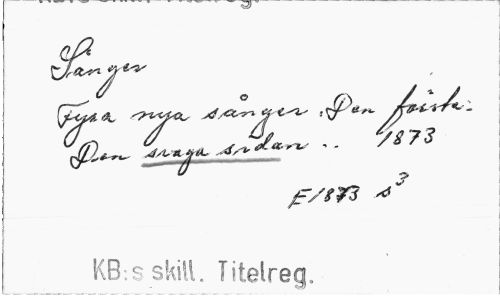 KB:s skill. Titelreg.
Sånger
Fyra nya sånger. Den första:
Den svaga sidan .. 1873
E 1873 s3
KB:s skill. Titelreg.